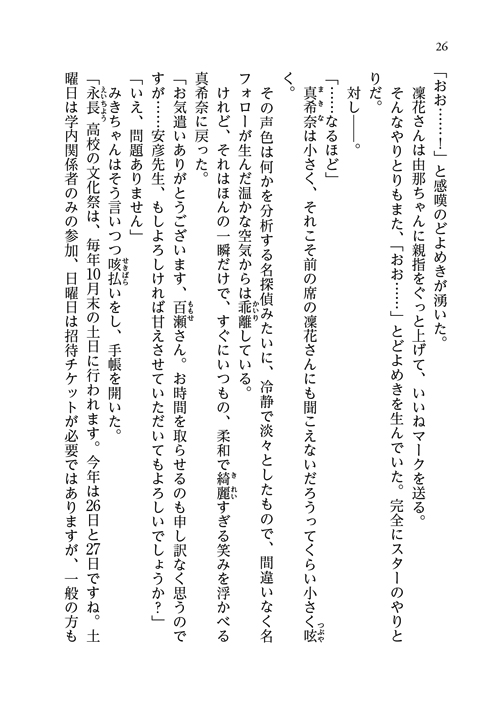 26
「おお……！」と感嘆のどよめきが湧いた。
凜花さんは由那ちゃんに親指をぐっと上げて、いいねマークを送る。
そんなやりとりもまた、「おお……」とどよめきを生んでいた。完全にスターのやりと
りだ。
対し――。
「……なるほど」
真希奈は小さく、それこそ前の席の凜花さんにも聞こえないだろうってくらい小さく呟
く。
その声色は何かを分析する名探偵みたいに、冷静で淡々としたもので、間違いなく名
フォローが生んだ温かな空気からは乖離している。
けれど、それはほんの一瞬だけで、すぐにいつもの、柔和で綺麗すぎる笑みを浮かべる
真希奈に戻った。
「お気遣いありがとうございます、百瀬さん。お時間を取らせるのも申し訳なく思うので
すが……安彦先生、もしよろしければ甘えさせていただいてもよろしいでしょうか？」
「いえ、問題ありません」
みきちゃんはそう言いつつ咳払いをし、手帳を開いた。
「永長高校の文化祭は、毎年10月末の土日に行われます。今年は26日と27日ですね。土
曜日は学内関係者のみの参加、日曜日は招待チケットが必要ではありますが、一般の方も